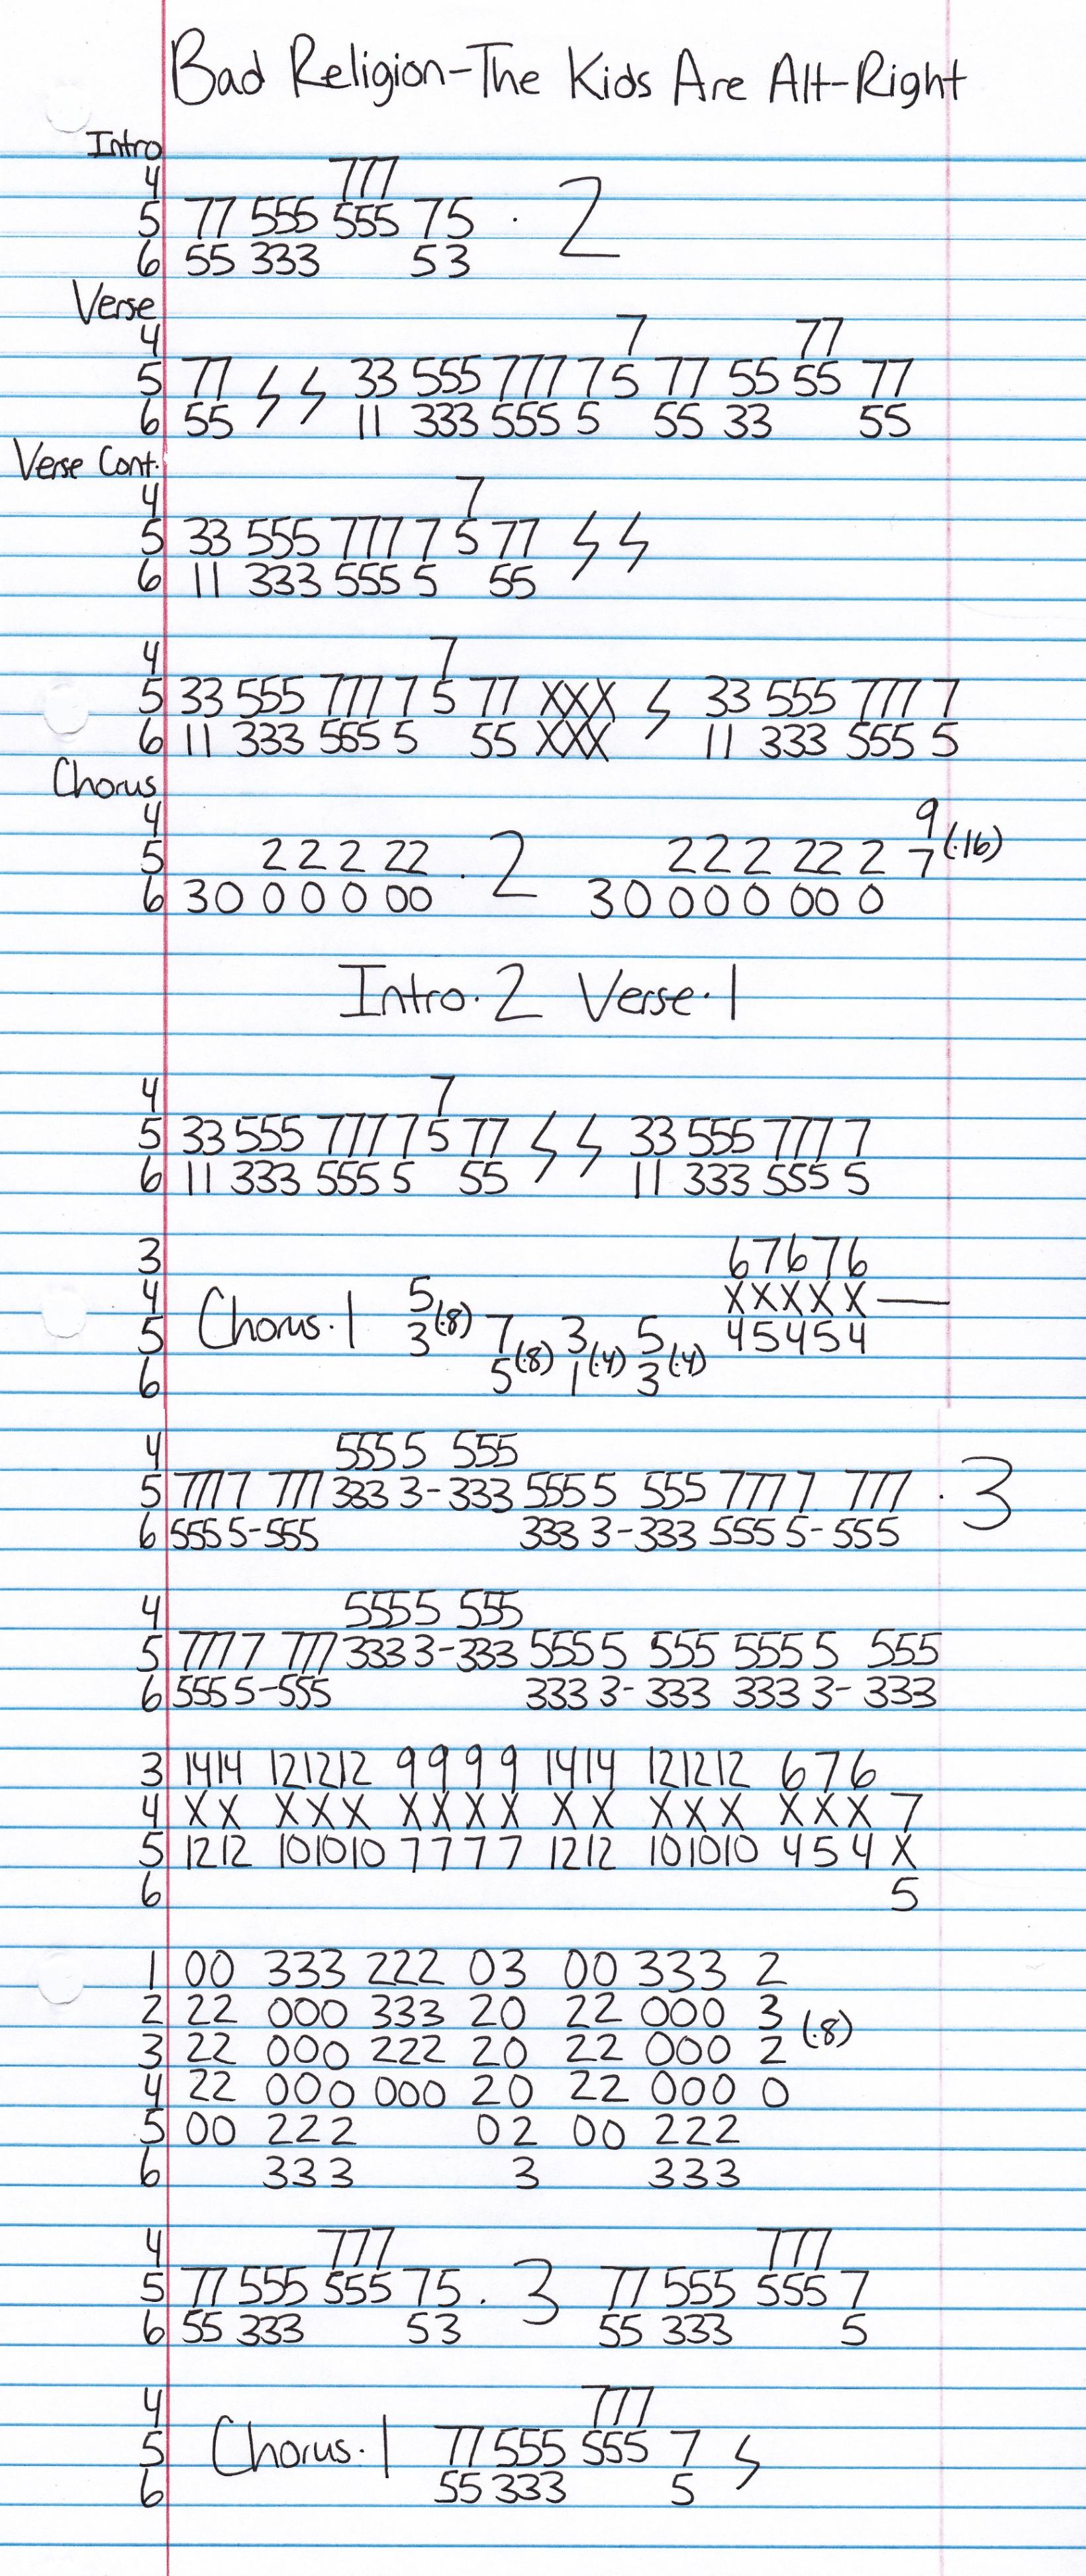 Bad Religion-The Kids Are Alt-Right
Intro
4 777
5 77 555 555 75 · 2
6 55 333 53
Verse
4 7 77
5 77 33 555 777 7 5 77 55 55 77
6 55 11 333 555 5 55 33 55
Verse Cont.
4 7
5 33 555 777 7 5 77
6 11 333 555 5 55
4 7
5 33 555 777 7 5 77 XXX 33 555 777 7
6 11 333 555 5 55 XXX 11 333 555 5
Chorus
4 9
5 2 2 2 22 · 2 2 2 2 22 2 7 (·16)
6 30 0 0 0 00 30 0 0 0 00 0
Intro·2 Verse·1
4 7
5 33 555 777 7 5 77 33 555 777 7
6 11 333 555 5 55 11 333 555 5
3 6 7 6 7 6
4 Chorus·1 5 X X X X X —
5 3 (·8) 7 3 5 4 5 4 5 4
6 5 (·8) 1 (·4) 3 (·4)
4 555 5 555
5 777 7 777 333 3-333 555 5 555 777 7 777 · 3
6 555 5-555 333 3-333 555 5-555
4 555 5 555
5 777 7 777 333 3-333 555 5 555 555 5 555
6 555 5-555 333 3-333 333 3-333
3 1414 121212 9 9 9 9 1414 121212 6 7 6
4 X X X X X X X X X X X X X X X X X 7
5 1212 101010 7 7 7 7 1212 101010 4 5 4 X
6 5
1 00 333 222 03 00 333 2
2 22 000 333 20 22 000 3 (·8)
3 22 000 222 20 22 000 2
4 22 000 000 20 22 000 0
5 00 222 02 00 222
6 333 3 333
4 777 777
5 77 555 555 75 · 3 77 555 555 7
6 55 333 53 55 333 5
4 777
5 Chorus·1 77 555 555 7
6 55 333 5